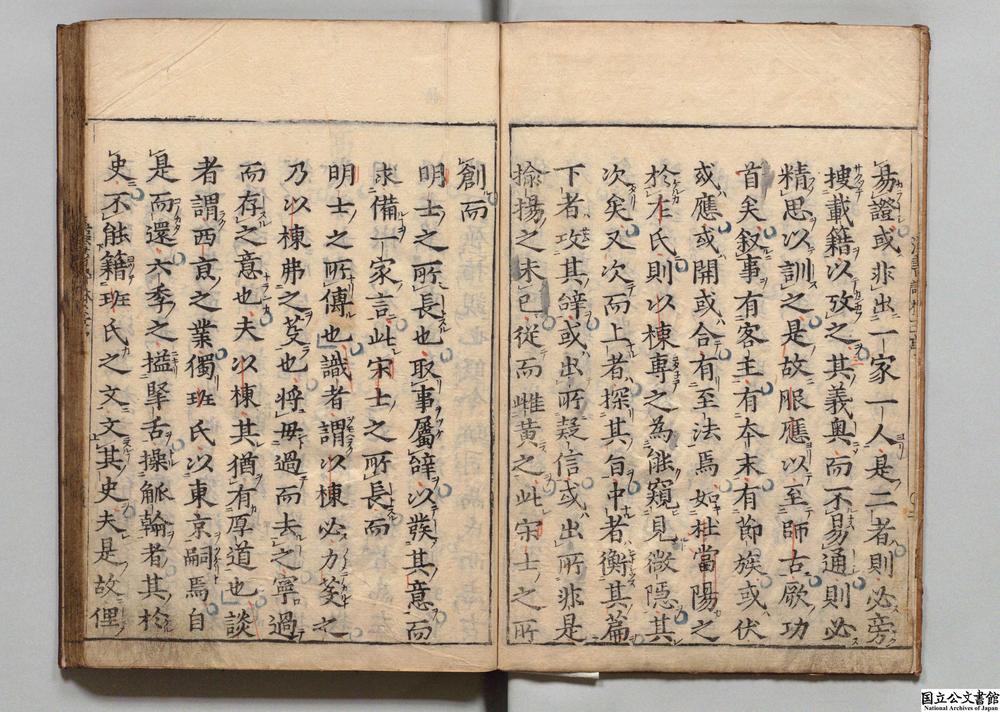 易證或非出一家一人是二者則必旁
搜載籍以攷之其義奧而不易通則必
精思以訓之是故服應以至師古厥功
首矣敘事有客主有本末有節族或伏
或應或開或合有至法焉如杜當陽之
於左氏則以棟專之為能窺見微隱其
次矣又次而上者探其旨中者衡其篇
下者攻其辭或出所疑信或出所非是
揄揚之未已從而雌黃之此宋士之所
創而
明士之所長也取事屬辭以發其意而
求備一家言此宋士之所長而
明士之所傳也識者謂以棟必力芟之
乃以棟弗之芟也將毋過而去之寧過
而存之意也夫以棟其猶有厚道也談
者謂西京之業獨班氏以東京嗣焉自
是而還六季之搤掔舌操觚翰者其於
史不能籍班氏之文文其史夫是故俚
国立公文書館
National Archives of Japan